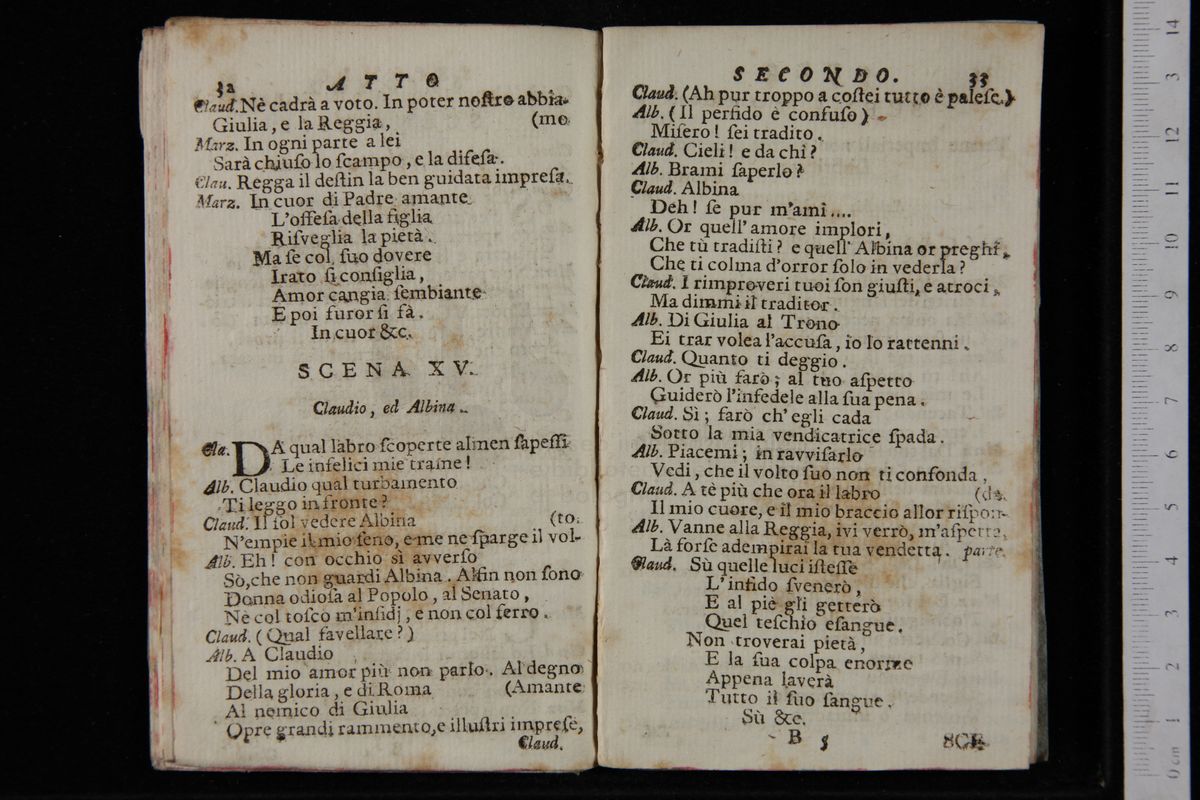 32 ATTO
Claud. Nè cadrà a voto. In poter noſtro abbia-
Giulia, e la Reggia, (mo
Marz. In ogni parte a lei
Sarà chiuſo lo ſcampo, e la difeſa.
Clau. Regga il deſtin la ben guidata impreſa.
Marz. In cuor di Padre amante
L'offeſa della figlia
Riſveglia la pietà.
Ma ſe col ſuo dovere
Irato ſi conſiglia,
Amor cangia ſembiante
E poi furor ſi fà.
In cuor &c.
SCENA XV.
Claudio, ed Albina.
Cla. DA qual labro ſcoperte almen ſapeſſi
Le infelici mie trame!
Alb. Claudio qual turbamento
Ti leggo in fronte?
Claud. Il ſol vedere Albina (to.
N'empie il mio ſeno, e me ne ſparge il vol-
Alb. Eh! con occhio sì avverſo
Sò, che non guardi Albina. Alfin non ſono
Donna odioſa al Popolo, al Senato,
Nè col toſco m'inſidj, e non col ferro.
Claud. (Qual favellare?)
Alb. A Claudio
Del mio amor più non parlo. Al degno
Della gloria, e di Roma (Amante
Al nemico di Giulia
Opre grandi rammento, e illuſtri impreſe,
Claud.
SECONDO. 33
Claud. (Ah pur troppo a coſtei tutto è paleſe.)
Alb. (Il perfido è confuſo)
Miſero! ſei tradito.
Claud. Cieli! e da chì?
Alb. Brami ſaperlo?
Claud. Albina
Deh! ſe pur m'amì....
Alb. Or quell'amore implori,
Che tù tradiſti? e quell'Albina or preghi,
Che ti colma d'orror ſolo in vederla?
Claud. I rimproveri tuoi ſon giuſti, e atroci,
Ma dimmi il traditor.
Alb. Di Giulia al Trono
Ei trar volea l'accuſa, io lo rattenni.
Claud. Quanto ti deggio.
Alb. Or più farò; al tuo aſpetto
Guiderò l'infedele alla ſua pena.
Claud. Sì; farò ch'egli cada
Sotto la mia vendicatrice ſpada.
Alb. Piacemi; in ravviſarlo
Vedi, che il volto ſuo non ti confonda,
Claud. A tè più che ora il labro (da.
Il mio cuore, e il mio braccio allor riſpon-
Alb. Vanne alla Reggia, ivi verrò, m'aſpetta,
Là forſe adempirai la tua vendetta. parte.
Claud. Sù quelle luci iſteſſe
L'infido ſvenerò,
E al piè gli getterò
Quel teſchio eſangue.
Non troverai pietà,
E la ſua colpa enorme
Appena laverà
Tutto il ſuo ſangue.
Sù &c.
B 5 SCE-
0 cm 1 2 3 4 5 6 7 8 9 10 11 12 3 14